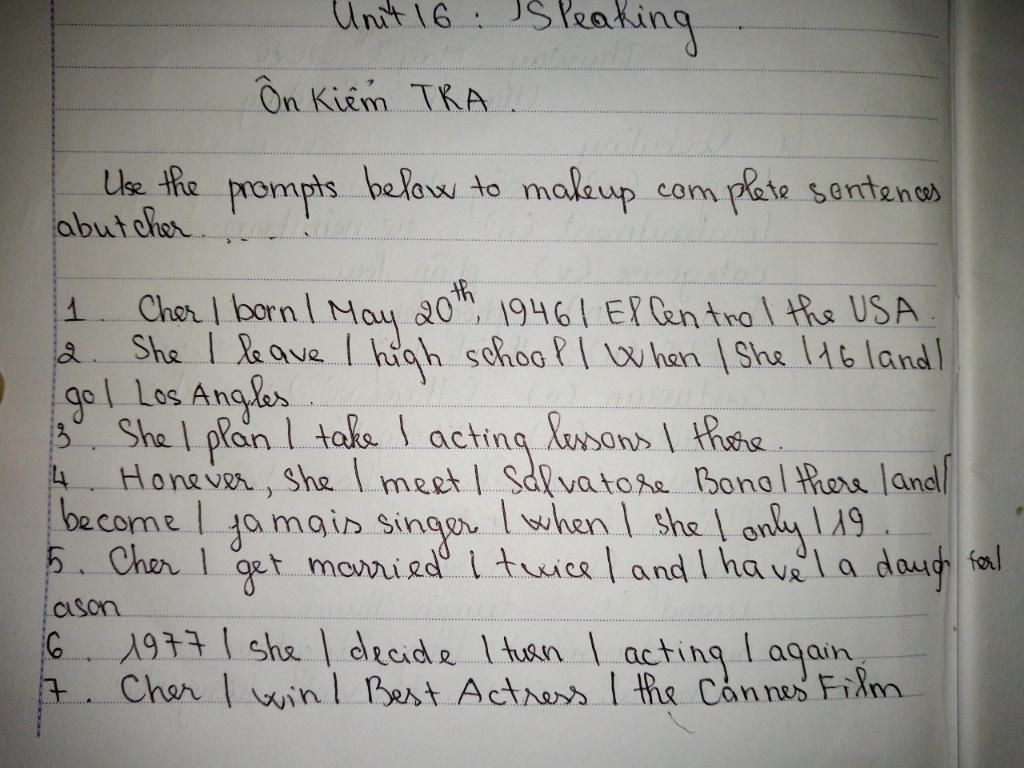 Unit 16 : Speaking .
Ôn Kiểm TRA .
Use the prompts below to makeup complete sentences
abut cher . ... .
1. Cher / born / May 20th, 1946 / El Centro / the USA .
2. She / leave / high school / When / She / 16 / and /
go / Los Angles .
3. She / plan / take / acting lessons / there .
4. Honever, She / meet / Salvatore Bono / there / and /
become / jamais singer / when / she / only / 19 .
5. Cher / get married / twice / and / have / a daugh ter /
ason
6. 1977 / she / decide / turn / acting / again .
7. Cher / win / Best Actress / the Cannes Film